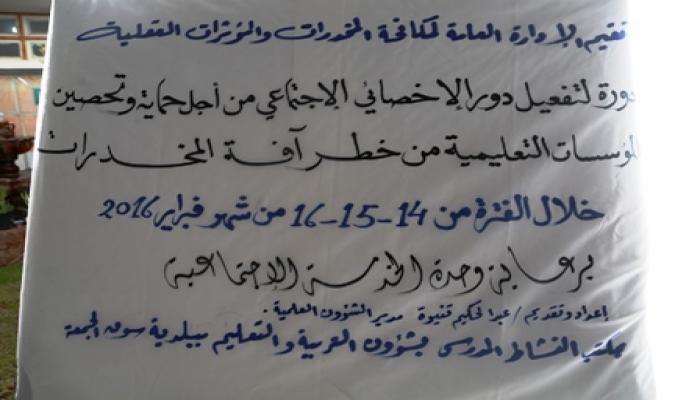 تقيم الإدارة العامة لمكافحة المخدرات والمؤثرات العقلية
دورة لتفعيل دور الإخصائي الإجتماعي من أجل حماية وتحصين
المؤسسات التعليمية من خطر آفة المخدرات
خلال الفترة من 14-15-16 من شهر فبراير 2016
برعاية وحدة الخدمة الإجتماعية
إعداد وتقديم / عبدالحكيم قنيوة مدير الشؤون العلمية .
بمكتب النشاط المدرسي بشؤون التربية والتعليم ببلدية سوق الجمعة